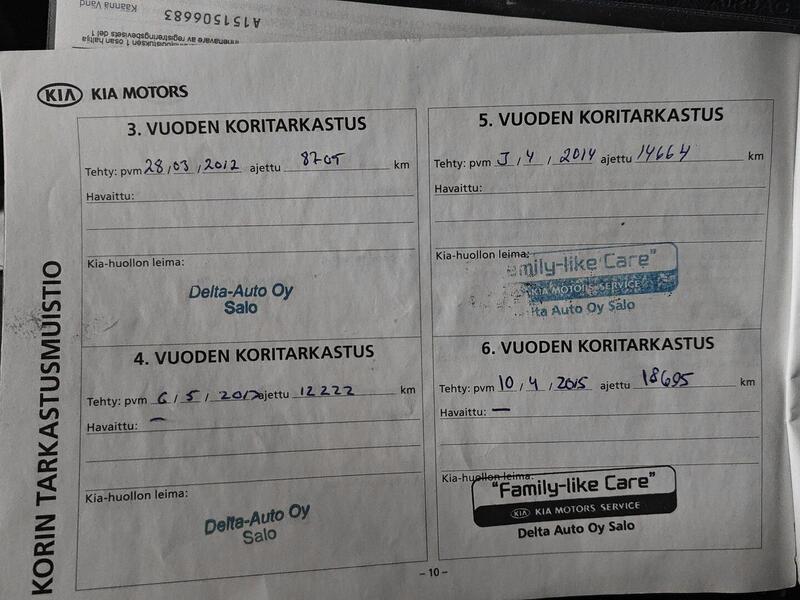 Käännä Vänd
A15150683
KIA KIA MOTORS
KORIN TARKASTUSMUISTIO
3. VUODEN KORITARKASTUS
Tehty: pvm 28 / 03 , 2012 ajettu 8705 km
Havaittu:
Kia-huollon leima:
Delta-Auto Oy
Salo
4. VUODEN KORITARKASTUS
Tehty: pvm 6 / 5 , ajettu 12222 km
Havaittu: —
Kia-huollon leima:
Delta-Auto Oy
Salo
5. VUODEN KORITARKASTUS
Tehty: pvm , 4 , 2014 ajettu 14664 km
Havaittu:
Kia-huollon leima:
emily-like Care"
KIA MOTORS SERVICE
lta Auto Oy Salo
6. VUODEN KORITARKASTUS
Tehty: pvm 10 , 4 , 2015 ajettu 18695 km
Havaittu: —
Kia-huollon leima:
"Family-like Care"
KIA KIA MOTORS SERVICE
Delta Auto Oy Salo
– 10 –